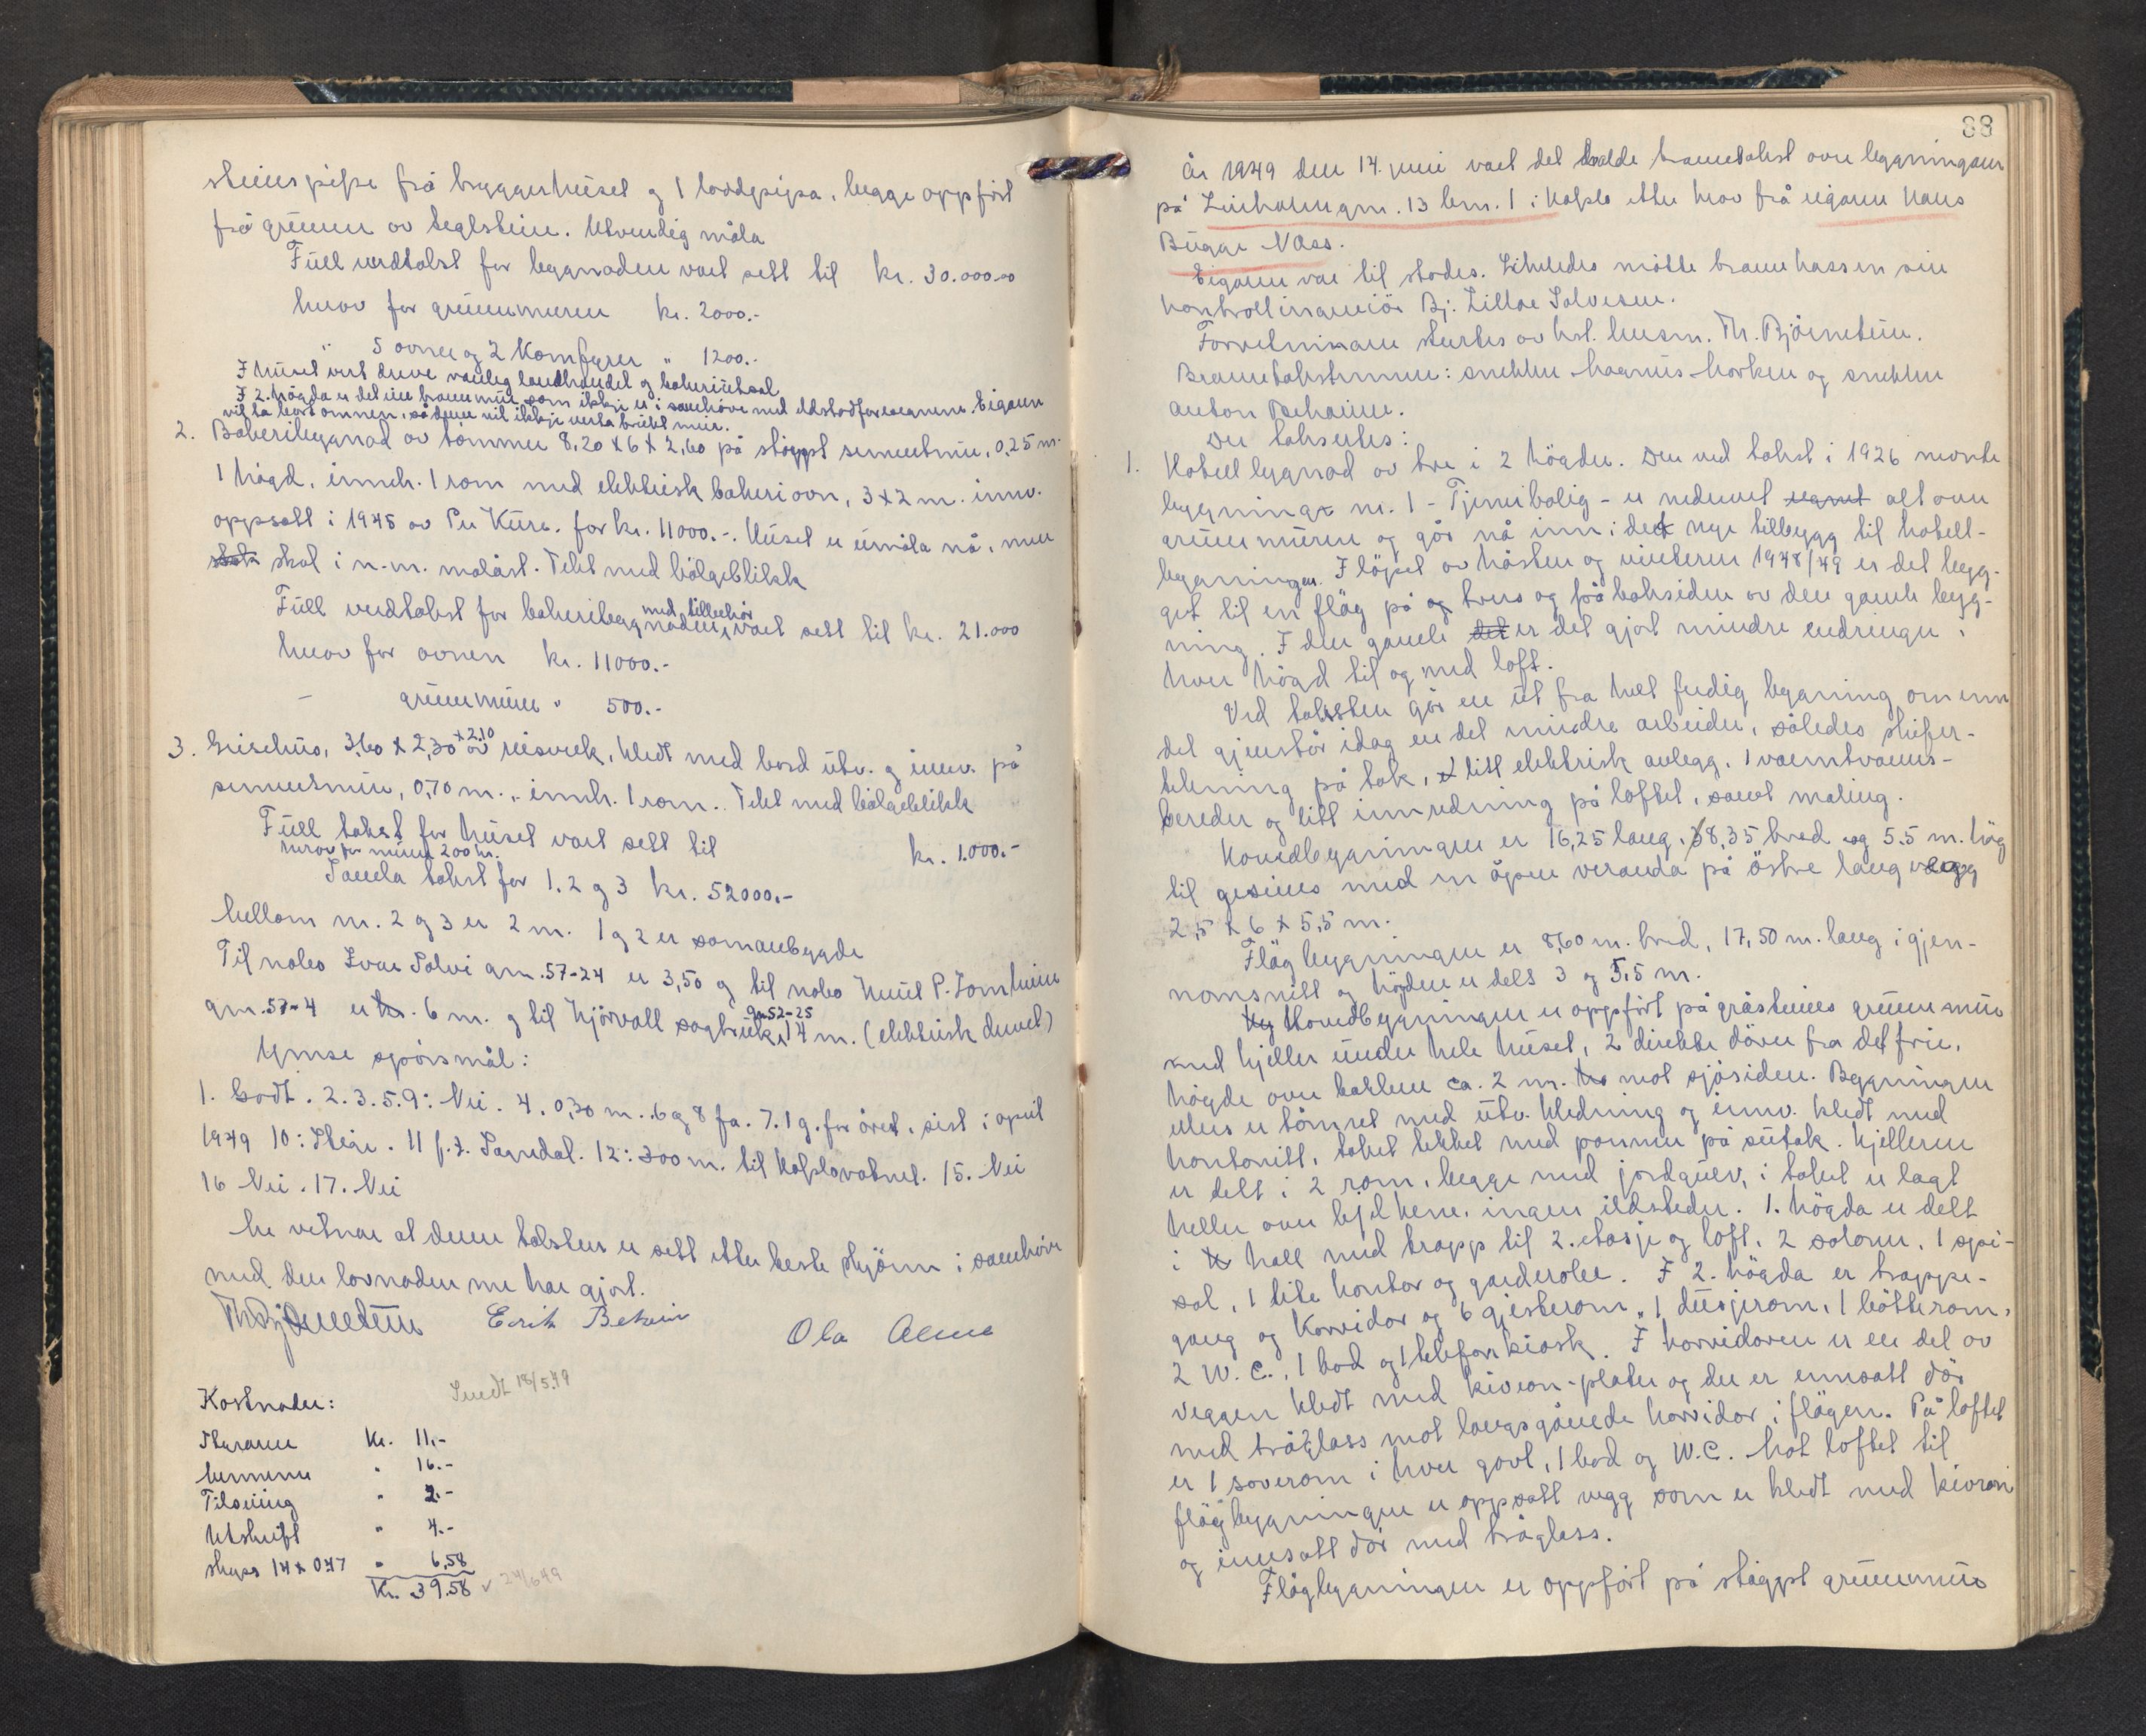 steinspipe frå bryggerhuset og 1 loddpipa, begge oppført
frå grunn av teglstein. Utvendig måla
Full verdtakst for bygnaden vart sett til kr. 30.000.00
herav for grunnmuren kr. 2000.-
" 5 ovner og 2 Komfyrer " 1200.-
I huset vert dreve vanleg landhandel og bakeriutsal
I 2. högda er det ein brannmur som ikkje er i samhöve med eldstadforesegnene. Eigaren
vil ta bort omnen, så denne vil ikkje verta brukt meir.
2. Bakeribygnad av tömmer 8,20 x 6 x 2,60 på stöypt sementmur, 0,25 m.
1 högd, innh. 1 rom med elektrisk bakeriovn, 3 x 2 m. innv.
oppsatt i 1948 av Per Kure. for kr. 11000.-. Huset er umåla nå, men
skal i n.m. målast. Tekt med bölgeblikk
Full verdtakst for bakeribygnaden med tilbehör vart sett til kr. 21.000
herav for ovnen kr. 11000.-
- grunnmur " 500.-
3. Grisehus, 3,60 x 2,30 x 2,10 av reisverk, kledt med bord utv. og innv. på
sementmur, 0,70 m., innh. 1 rom. Tekt med bölgeblikk
Full takst for huset vart sett til kr. 1.000.-
herav for muren 200 kr.
Samla takst for 1, 2 og 3 kr. 52000.-
Mellom nr. 2 og 3 er 2 m. 1 og 2 er samanbygde
Til nabo Ivar Solvi gnr. 57-24 er 3,50 og til nabo Knut P.
gnr. 57-4 er 6 m. og til Hjörvall sagbruk, gn 52-25 14 m. (elektrisk drevet)
Ymse spörsmål:
1. Godt. 2. 3. 5. 9: Nei. 4. 0,30 m. 6 og 8 ja. 7. 1 g. for året, sist i april
1949 10: Stige. 11 f.t. Sogndal. 12: 300 m. til Kaplavatnet. 15. Nei
16 Nei. 17. Nei
Me vitnar at denne taksten er sett etter beste skjönn i samhöve
med den lovnaden me har gjort.
Th Björnetun Erik Ola
Sendt 18/5.49
Kostnader:
Styraren Kr. 11,-
Mennene " 16.-
Tilseiing " 2.-
Utskrift " 4.-
Skyss 14 x 0.47 " 6,58
Kr. 39.58 24/6 49
88
År 1949 den 14. juni vart det halde branntakst over bygningane
på gnr. 13 bnr. 1 i Kaplo etter krav frå eigaren Hans
Bugge Næss.
Eigaren var til stades. Likeledes mötte brannkassen sin
kontrollingeniör Bj. Lilloe Salvesen.
Forretningane styrtes av kst. lensm. Th. Björnetun.
Branntakstmenn: snekker Magnus Morken og snekker
Anton
Der takseres:
1. Hotell bygnad av tre i 2 högder. Den ved takst i 1926 nevnte
bygning nr. 1 - Tjenerbolig - er nedrevet alt over
grunnmuren og går nå inn i det nye tilbygg til hotell-
bygningen. I löpet av hösten og vinteren 1948/49 er det byg-
get til en flög på og tvers og på baksiden av den gamle byg-
ning. I den gamle er det gjort mindre endringer i
hver högd til og med loft.
Ved taksten går en ut fra helt ferdig bygning om enn
det gjenstår idag en del mindre arbeider, således skifer-
tekning på tak, litt elektrisk anlegg, 1 varmtvanns-
bereder og litt innredning på loftet, samt maling.
Hovedbygningen er 16,25 lang, 8,35 bred og 5.5 m. hög
til gesims med en åpen veranda på östre lang vegg
2,5 x 6 x 5,5 m.
Flögbygningen er 8,60 m. bred, 17,50 m. lang i gjen-
nomsnitt og höyden er dels 3 og 5,5 m.
Hovedbygningen er oppfört på gråsteins grunnmur
med kjeller under hele huset, 2 direkte dörer fra det frie,
högde over bakken ca. 2 m. mot sjösiden. Bygningen
ellers er tömret med utv. kledning og innv. kledt med
huntonitt, taket tekket med panner på sutak. Kjelleren
er delt i 2 rom, begge med jordgulv, i taket er lagt
heller over bjelkene, ingen ildsteder. 1. högda er delt
i hall med trapp til 2. etasje og loft, 2 saloner, 1 spi-
sal, 1 lite kontor og garderobe. I 2. högda er trappe-
gang og Korridor og 6 gjesterom, 1 dusjerom, 1 bötterom,
2 W.C., 1 bad og 1 telefonkiosk. I korridoren er en del av
veggen kledt med kivron-plater og der er innsatt dör
med trådglass mot langsgående korridor i flögen. På loftet
er 1 soverom i hver gavl, 1 bod og W.C. Mot loftet til
flögbygningen er oppsatt vegg som er kledt med kivron
og innsatt dör med trådglass.
Flögbygningen er oppfört på stöypt grunnmur